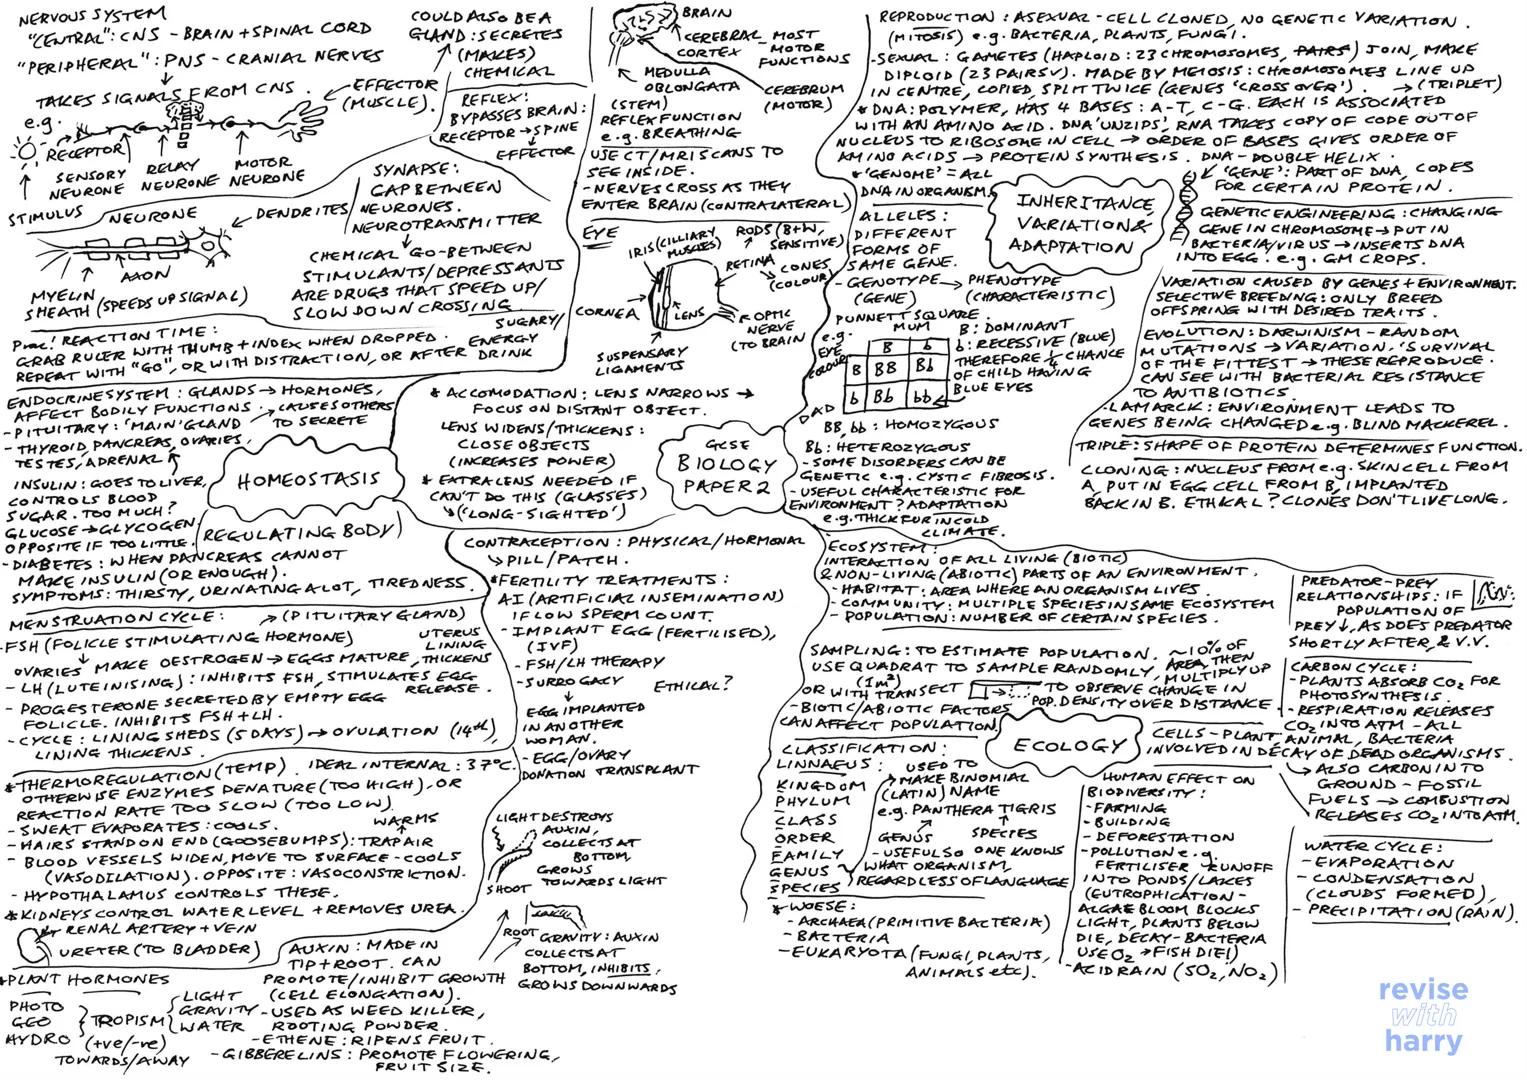 NERVOUS SYSTEM
"CENTRAL": CNS - BRAIN + SPINAL CORD
"PERIPHERAL": PNS - CRANIAL NERVES
TAKES SIGNALS FROM CNS.
e.g.
EFFECTOR
(MUSCLE).
RECEPTOR
SENSORY
NEURONE
RELAY
NEURONE
MOTOR
NEURONE
STIMULUS
COULD ALSO BE A
GLAND: SECRETES
(MAKES)
CHEMICAL
REFLEX:
BYPASSES BRAIN:
RECEPTOR → SPINE
EFFECTOR
NEURONE
DENDRITES
AXON
MYELIN
SHEATH (SPEEDS UP SIGNAL)
SYNAPSE:
GAP BETWEEN
NEURONES.
NEUROTRANSMITTER
CHEMICAL GO-BETWEEN
STIMULANTS/DEPRESSANTS
ARE DRUGS THAT SPEED UP/
SLOW DOWN CROSSING
Prac! REACTION TIME:
GRAB RULER WITH THUMB + INDEX WHEN DROPPED.
REPEAT WITH "GO", OR WITH DISTRACTION, OR AFTER DRINK
SUGARY/
ENERGY
BRAIN
CEREBRAL
CORTEX
- MOST
MOTOR
FUNCTIONS
MEDULLA
OBLONGATA
(STEM)
CEREBRUM
(MOTOR)
REFLEX FUNCTION
e.g. BREATHING
USE CT/MRI SCANS TO
SEE INSIDE.
- NERVES CROSS AS THEY
ENTER BRAIN (CONTRALATERAL)
EYE
IRIS (CILLIARY
MUSCLES)
RODS (B+W,
SENSITIVE)
RETINA
CONES
(COLOUR)
CORNEA
LENS
OPTIC
NERVE
(TO BRAIN
SUSPENSARY
LIGAMENTS
* ACCOMODATION: LENS NARROWS →
FOCUS ON DISTANT OBJECT.
LENS WIDENS/THICKENS:
CLOSE OBJECTS
(INCREASES POWER)
* EXTRA LENS NEEDED IF
CAN'T DO THIS (GLASSES)
('LONG-SIGHTED')
GCSE
BIOLOGY
PAPER 2
ENDOCRINE SYSTEM: GLANDS → HORMONES,
AFFECT BODILY FUNCTIONS.
- PITUITARY: 'MAIN' GLAND
→ CAUSES OTHERS
TO SECRETE
- THYROID, PANCREAS, OVARIES,
TESTES, ADRENAL
INSULIN: GOES TO LIVER,
CONTROLS BLOOD
SUGAR. TOO MUCH?
GLUCOSE → GLYCOGEN
OPPOSITE IF TOO LITTLE.
HOMEOSTASIS
REGULATING BODY
- DIABETES: WHEN PANCREAS CANNOT
MAKE INSULIN (OR ENOUGH).
SYMPTOMS: THIRSTY, URINATING A LOT, TIREDNESS.
MENSTRUATION CYCLE: → (PITUITARY GLAND)
- FSH (FOLICLE STIMULATING HORMONE)
OVARIES MAKE OESTROGEN → EGGS MATURE,
UTERUS
LINING
THICKENS
- LH (LUTEINISING): INHIBITS FSH, STIMULATES EGG
RELEASE.
- PROGESTERONE SECRETED BY EMPTY EGG
FOLICLE. INHIBITS FSH + LH.
- CYCLE: LINING SHEDS (5 DAYS) → OVULATION (14th),
LINING THICKENS.
* THERMOREGULATION (TEMP). IDEAL INTERNAL: 37°C.
OTHERWISE ENZYMES DENATURE (TOO HIGH), OR
REACTION RATE TOO SLOW (TOO LOW).
- SWEAT EVAPORATES: COOLS.
WARMS
- HAIRS STAND ON END (GOOSEBUMPS): TRAP AIR
- BLOOD VESSELS WIDEN, MOVE TO SURFACE - COOLS
(VASODILATION). OPPOSITE: VASOCONSTRICTION.
- HYPOTHALAMUS CONTROLS THESE.
* KIDNEYS CONTROL WATER LEVEL + REMOVES UREA.
RENAL ARTERY + VEIN
URETER (TO BLADDER)
* PLANT HORMONES
PHOTO
GEO
HYDRO
TROPISM
(+ve/-ve)
TOWARDS/AWAY
LIGHT
GRAVITY
WATER
AUXIN: MADE IN
TIP + ROOT. CAN
PROMOTE/INHIBIT GROWTH
(CELL ELONGATION).
- USED AS WEED KILLER,
ROOTING POWDER.
- ETHENE: RIPENS FRUIT.
- GIBBERELINS: PROMOTE FLOWERING,
FRUIT SIZE.
CONTRACEPTION: PHYSICAL/HORMONAL
PILL/PATCH.
* FERTILITY TREATMENTS:
AI (ARTIFICIAL INSEMINATION)
IF LOW SPERM COUNT.
- IMPLANT EGG (FERTILISED),
(IVF)
- FSH/LH THERAPY
- SURROGACY
ETHICAL?
EGG IMPLANTED
IN ANOTHER
WOMAN.
- EGG/OVARY
DONATION TRANSPLANT
LIGHT DESTROYS
AUXIN,
COLLECTS AT
BOTTOM,
GROWS
TOWARDS LIGHT
SHOOT
ROOT
GRAVITY: AUXIN
COLLECTS AT
BOTTOM, INHIBITS,
GROWS DOWNWARDS
REPRODUCTION: ASEXUAL - CELL CLONED, NO GENETIC VARIATION.
(MITOSIS) e.g. BACTERIA, PLANTS, FUNGI.
- SEXUAL: GAMETES (HAPLOID: 23 CHROMOSOMES, PAIRS) JOIN, MAKE
DIPLOID (23 PAIRS). MADE BY MEIOSIS: CHROMOSOMES LINE UP
IN CENTRE, COPIED, SPLIT TWICE (GENES 'CROSS OVER'). → (TRIPLET)
* DNA: POLYMER, HAS 4 BASES: A-T, C-G. EACH IS ASSOCIATED
WITH AN AMINO ACID. DNA 'UNZIPS', RNA TAKES COPY OF CODE OUT OF
NUCLEUS TO RIBOSOME IN CELL → ORDER OF BASES GIVES ORDER OF
AMINO ACIDS → PROTEIN SYNTHESIS. DNA - DOUBLE HELIX.
* 'GENOME' = ALL
DNA IN ORGANISM
'GENE': PART OF DNA, CODES
FOR CERTAIN PROTEIN.
INHERITANCE,
VARIATION &
ADAPTATION
ALLELES:
DIFFERENT
FORMS OF
SAME GENE.
- GENOTYPE → PHENOTYPE
(GENE) (CHARACTERISTIC)
PUNNETT SQUARE.
e.g.
EYE
COLOUR
MUM
B b
B BB Bb
b Bb bb
DAD
B: DOMINANT
b: RECESSIVE (BLUE)
THEREFORE 1/4 CHANCE
OF CHILD HAVING
BLUE EYES
BB, bb: HOMOZYGOUS
Bb: HETEROZYGOUS
- SOME DISORDERS CAN BE
GENETIC e.g. CYSTIC FIBROSIS.
- USEFUL CHARACTERISTIC FOR
ENVIRONMENT? ADAPTATION
e.g. THICK FUR IN COLD
CLIMATE.
GENETIC ENGINEERING: CHANGING
GENE IN CHROMOSOME → PUT IN
BACTERIA/VIRUS → INSERTS DNA
INTO EGG. e.g. GM CROPS.
VARIATION CAUSED BY GENES + ENVIRONMENT.
SELECTIVE BREEDING: ONLY BREED
OFFSPRING WITH DESIRED TRAITS.
EVOLUTION: DARWINISM - RANDOM
MUTATIONS → VARIATION. 'SURVIVAL
OF THE FITTEST → THESE REPRODUCE.
CAN SEE WITH BACTERIAL RESISTANCE
TO ANTIBIOTICS.
- LAMARCK: ENVIRONMENT LEADS TO
GENES BEING CHANGED e.g. BLIND MACKEREL.
TRIPLE: SHAPE OF PROTEIN DETERMINES FUNCTION.
CLONING: NUCLEUS FROM e.g. SKIN CELL FROM
A, PUT IN EGG CELL FROM B, IMPLANTED
BACK IN B. ETHICAL? CLONES DON'T LIVE LONG.
ECOSYSTEM:
INTERACTION OF ALL LIVING (BIOTIC)
& NON-LIVING (ABIOTIC) PARTS OF AN ENVIRONMENT.
- HABITAT: AREA WHERE AN ORGANISM LIVES.
- COMMUNITY: MULTIPLE SPECIES IN SAME ECOSYSTEM
- POPULATION: NUMBER OF CERTAIN SPECIES.
SAMPLING: TO ESTIMATE POPULATION.
USE QUADRAT TO SAMPLE RANDOMLY,
(1m²)
~10% OF
AREA, THEN
MULTIPLY UP
OR WITH TRANSECT TO OBSERVE CHANGE IN
POP. DENSITY OVER DISTANCE
- BIOTIC/ABIOTIC FACTORS
CAN AFFECT POPULATION
ECOLOGY
PREDATOR-PREY
RELATIONSHIPS: IF
POPULATION OF
PREY ↓, AS DOES PREDATOR
SHORTLY AFTER, & V.V.
CARBON CYCLE:
- PLANTS ABSORB CO₂ FOR
PHOTOSYNTHESIS.
- RESPIRATION RELEASES
CO₂ INTO ATM - ALL
CELLS - PLANT, ANIMAL, BACTERIA
INVOLVED IN DECAY OF DEAD ORGANISMS.
ALSO CARBON INTO
GROUND - FOSSIL
FUELS → COMBUSTION
RELEASES CO₂ INTO ATM.
WATER CYCLE:
- EVAPORATION
- CONDENSATION
(CLOUDS FORMED),
- PRECIPITATION (RAIN).
CLASSIFICATION:
LINNAEUS:
KINGDOM
PHYLUM
CLASS
ORDER
FAMILY
GENUS
SPECIES
USED TO
MAKE BINOMIAL
(LATIN) NAME
e.g. PANTHERA TIGRIS
GENUS SPECIES
- USEFUL SO ONE KNOWS
WHAT ORGANISM,
REGARDLESS OF LANGUAGE
* WOESE:
- ARCHAEA (PRIMITIVE BACTERIA)
- BACTERIA
- EUKARYOTA (FUNGI, PLANTS,
ANIMALS etc).
HUMAN EFFECT ON
BIODIVERSITY:
- FARMING
- BUILDING
- DEFORESTATION
- POLLUTION e.g.
FERTILISER RUNOFF
INTO PONDS/LAKES
(EUTROPHICATION -
ALGAE BLOOM BLOCKS
LIGHT, PLANTS BELOW
DIE, DECAY - BACTERIA
USE O₂ → FISH DIE!)
- ACID RAIN (SO₂, NO₂)
revise
with
harry